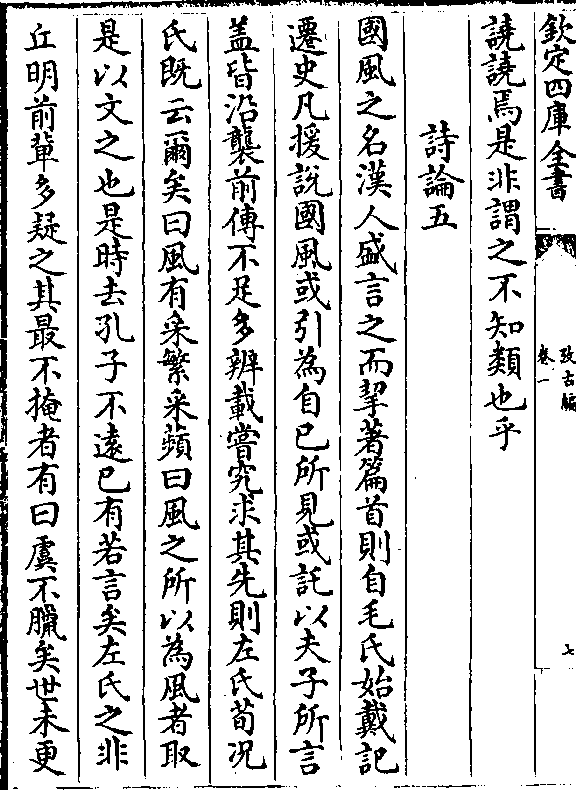 欽定四庫全書
攷古編
卷一
七
譊譊焉是非謂之不知類也乎
詩論五
國風之名漢人盛言之而挈著篇首則自毛氏始戴記
遷史凡援說國風或引為自已所見或託以夫子所言
盖皆沿襲前傳不足多辨載嘗究求其先則左氏荀况
氏既云爾矣曰風有采繁采蘋曰風之所以為風者取
是以文之也是時去孔子不遠已有若言矣左氏之非
丘明前輩多疑之其最不掩者有曰虞不臘矣世未更